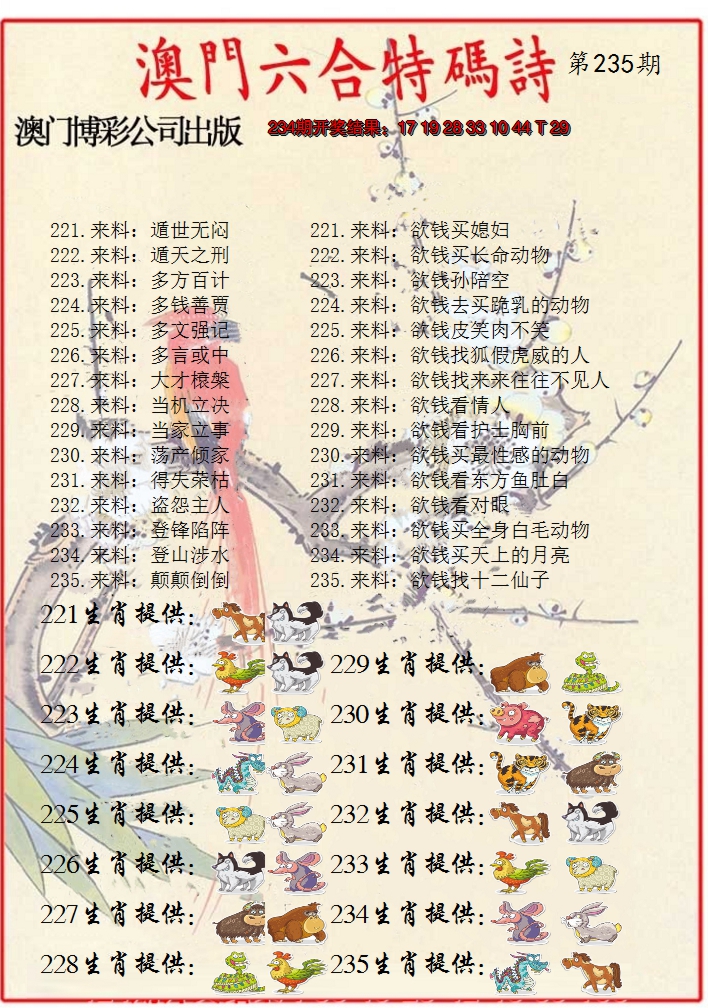 澳門六合特碼詩 第235期
澳门博彩公司出版 234期开奖结果：17 19 28 33 10 44 T 29
221.来料：遁世无闷 221.来料：欲钱买媳妇
222.来料：遁天之刑 222.来料：欲钱买长命动物
223.来料：多方百计 223.来料：欲钱孙陪空
224.来料：多钱善贾 224.来料：欲钱去买跪乳的动物
225.来料：多文强记 225.来料：欲钱皮笑肉不笑
226.来料：多言或中 226.来料：欲钱找狐假虎威的人
227.来料：大才槱槃 227.来料：欲钱找来来往往不见人
228.来料：当机立决 228.来料：欲钱看情人
229.来料：当家立事 229.来料：欲钱看护士胸前
230.来料：荡产倾家 230.来料：欲钱买最性感的动物
231.来料：得失荣枯 231.来料：欲钱看东方鱼肚白
232.来料：盗怨主人 232.来料：欲钱看对眼
233.来料：登锋陷阵 233.来料：欲钱买全身白毛动物
234.来料：登山涉水 234.来料：欲钱买天上的月亮
235.来料：颠颠倒倒 235.来料：欲钱找十二仙子
221生肖提供：
222生肖提供： 229生肖提供：
223生肖提供： 230生肖提供：
224生肖提供： 231生肖提供：
225生肖提供： 232生肖提供：
226生肖提供： 233生肖提供：
227生肖提供： 234生肖提供：
228生肖提供： 235生肖提供：